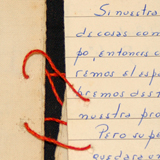 Si nuestra
de cosas com
po, entonces c
remos el espa
bremos dest
nuestra pro
Pero su pe
quedara un